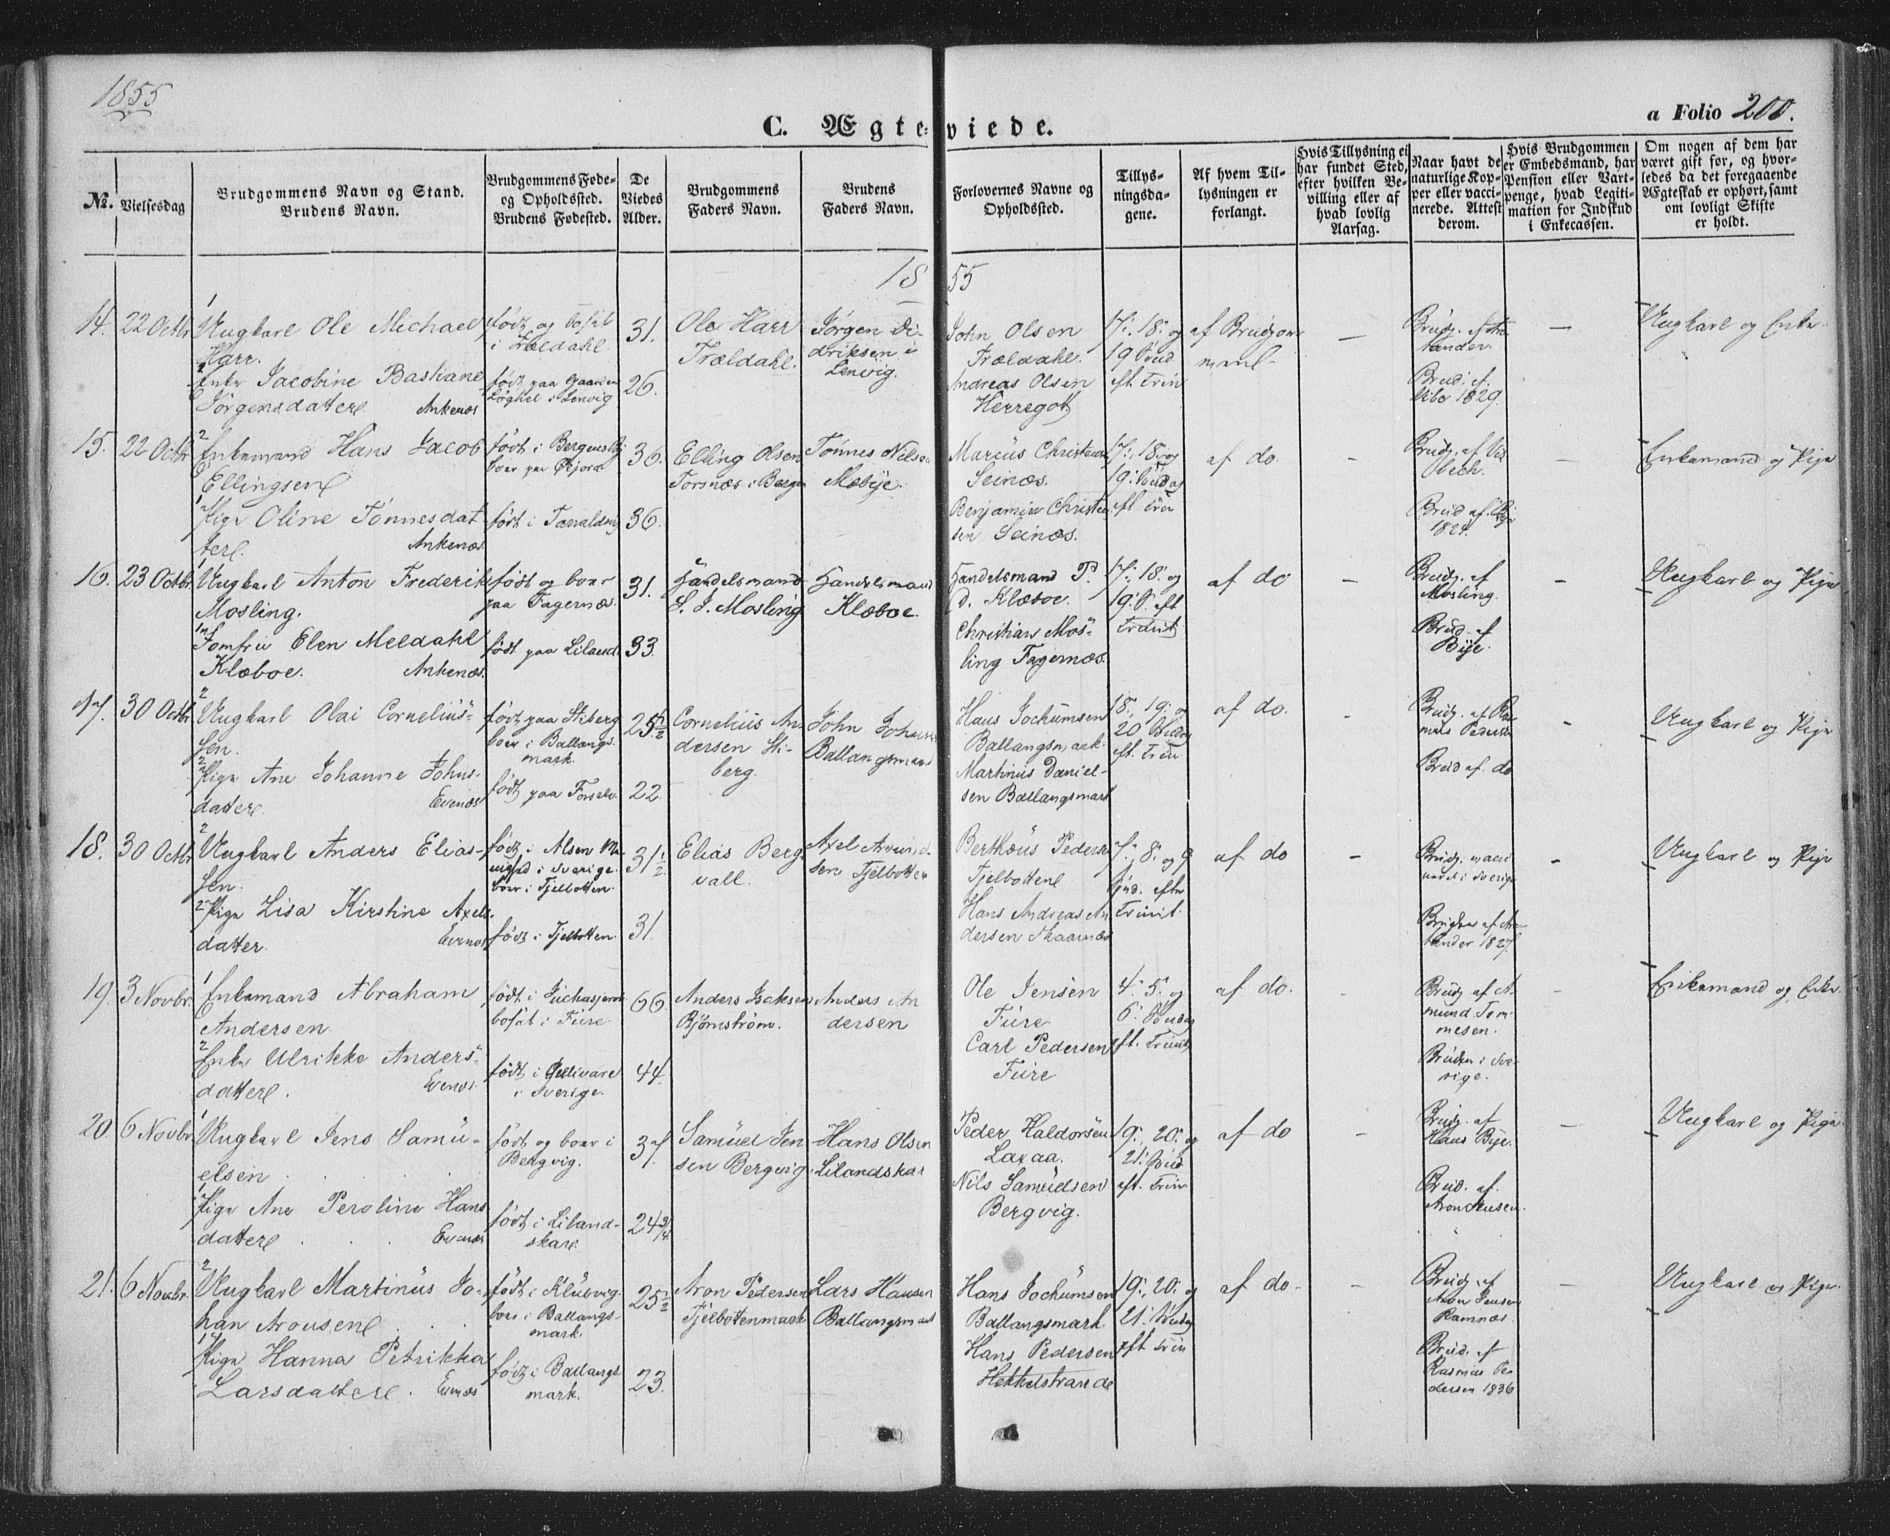 1855
C. Ægte-viede.
a Folio 200.
№.
Vielsesdag
Brudgommens Navn og Stand.
Brudens Navn.
Brudgommens Føde-
og Opholdsted.
Brudens Fødested.
De
Viedes
Alder.
Brudgommens
Faders Navn.
Brudens
Faders Navn.
Forlovernes Navne og
Opholdsted.
Tillys-
ningsda-
gene.
Af hvem Til-
lysningen er
forlangt.
Hvis Tillysning ei
har fundet Sted,
efter hvilken Be-
villing eller af
hvad lovlig
Aarsag.
Naar havt de
naturlige Kop-
per eller vacci-
nerede. Attest
derom.
Hvis Brudgommen
er Embedsmand, har
Pension eller Vart-
penge, hvad Legiti-
mation for Indskud
i Enkecassen.
Om nogen af dem har
været gift før, og hvor-
ledes da det foregaaende
Ægteskab er ophørt, samt
om lovligt Skifte
er holdt.
1855
14. 22 Octbr
1 Ungkarl Ole Michael
Harr.
Enke Jacobine Bastiane
Jørgensdatter. Ankenæs
født og bosat
i Trældahl.
født paa Gaarden
Løghel i Lenvig
31.
26.
Ole Harr
Trældahl.
Jørgen Di-
driksen i
Lenvig.
John Olsen
Trældahl.
Andreas Olsen
Herregott
17: 18: og
19
eft Trin
af Brudgom
men
—
Brudg. af
1829.
—
Ungkarl og Enke.
15. 22 Octbr
2 Enkemand Hans Jacob
Ellingsen
1 Pige Oline Tønnesdat
ter. Ankenæs.
født i Bergens
boer paa
født i
36.
36.
Elling Olsen
Torsnæs i Bergen
Tønnes Nilsen
Mebye.
Marcus Christensen
Seinæs.
Benjamin Christen
sen Seinæs.
17: 18: og
19:
eft Trin
af do.
—
Brudg. af
Brud af
—
Enkemand og Pige
16. 23 Octbr.
1 Ungkarl Anton Frederik
Mosling.
Jomfru Elen Meldahl
Klæboe. Ankenæs.
født og boer
paa Fagernæs.
født paa Liland.
31.
33.
Handelsmand
S. J. Mosling
Handelsmand
Klæboe.
Handelsmand P.
D. Klæboe.
Christians Mos-
ling Fagernæs.
17: 18: og
19: S. eft
Trinit
af do
—
Brudg. af
Mosling.
Brud. af
Bye.
—
Ungkarl og Pige
17. 30 Octbr
2 Ungkarl Olai Cornelius-
sen.
2 Pige Ane Johanne Johns-
datter. Evenæs
født paa Stiberg
boer i Ballangs
mark.
født paa
25 1/2
22.
Cornelius An
dersen Sti-
berg.
John
Ballangsmark
Hans Jochumsen
Ballangsmark.
Martinus Daniel-
sen Ballangsmark
18: 19: og
20
eft Trin
af do.
-
Brudg. af
Brud af do
—
Ungkarl og Pige
18. 30 Octbr
2 Ungkarl Anders Elias-
sen.
2 Pige Lisa Kirstine Axels
datter. Evenæs
født i Alsen
i Sverige
boer i Tjelbotten.
født i Tjelbotten
31 1/2
31.
Elias Berg-
vall.
Axel
sen Tjelbotten
Berthæus Peders
Tjelbotten
Hans Andreas An
dersen Skaarnæs
7: 8: og 9
efter
Trinit.
af do
—
Brudg.
i Sverige
Bruden af
1827.
-
Ungkarl og Pige
19. 3 Novbr.
1 Enkemand Abraham
Andersen
2 Enke Ulrikke Anders-
datter. Evenæs.
født i
bosat i Fure.
født i Gellivare
i Sverige.
66
44.
Anders Isaksen
Bjørnstrøm.
Anders An
dersen
Ole Jensen
Fure
Carl Pedersen
Fure
4: 5: og
6:
eft. Trinit
af do.
-
Brudg af A-
mund Tom
mesen.
Bruden i Sve-
rige.
—
Enkemand og Enke
20. 6 Novbr
1 Ungkarl Jens Samu-
elsen
1 Pige Ane Peroline Hans
datter. Evenæs
født og boer i
Bergvig.
født i Liland-
skar.
37.
24 3/4
Samuel Jen
sen Bergvig.
Hans Olsen
Lilandskar
Peder Haldorsen
Laxaa.
Nils Samuelsen
Bergvig.
19: 20: og
21:
eft. Trin
af do
—
Brudg. af
Hans Bye.
Brud. af.
Aron Jensen.
—
Ungkarl og Pige
21. 6 Novbr.
2 Ungkarl Martinus Jo-
han Aronsen
1 Pige Hanna Petrikka
Larsdatter. Evenæs
født i
boer i Ballangs-
mark.
født i Ballangs
mark.
25 1/2
23.
Aron Pedersen
Tjelbotenmark
Lars Hansen
Ballangsmark
Hans Jochumsen
Ballangsmark
Hans Pedersen
Hekkelstrande
19: 20: og
21:
eft Trin
af do.
—
Brudg. af
Aron Jensen
Ramnæs.
Brud. af
Rasmus Pe
dersen 1836
—
Ungkarl og Pige.